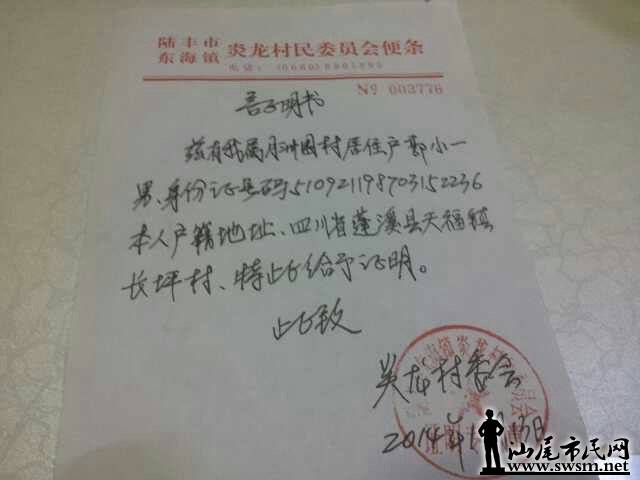 陆丰市
东海镇 炎龙村民委员会便条
电话：(0660)8
No 003776
证明书
兹有我属月洲园村居住户郭小一
男、身份证号码510921198703152236
本人户籍地址、四川省蓬溪县天福镇
长坪村、特此给予证明。
此致
炎龙村委会
2014年1月13日
汕尾市民网
www.swsm.net